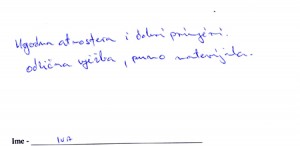 Ugodna atmosfera i dobri primjeri.
odlična vježba, puno materijala.
Ime - INA